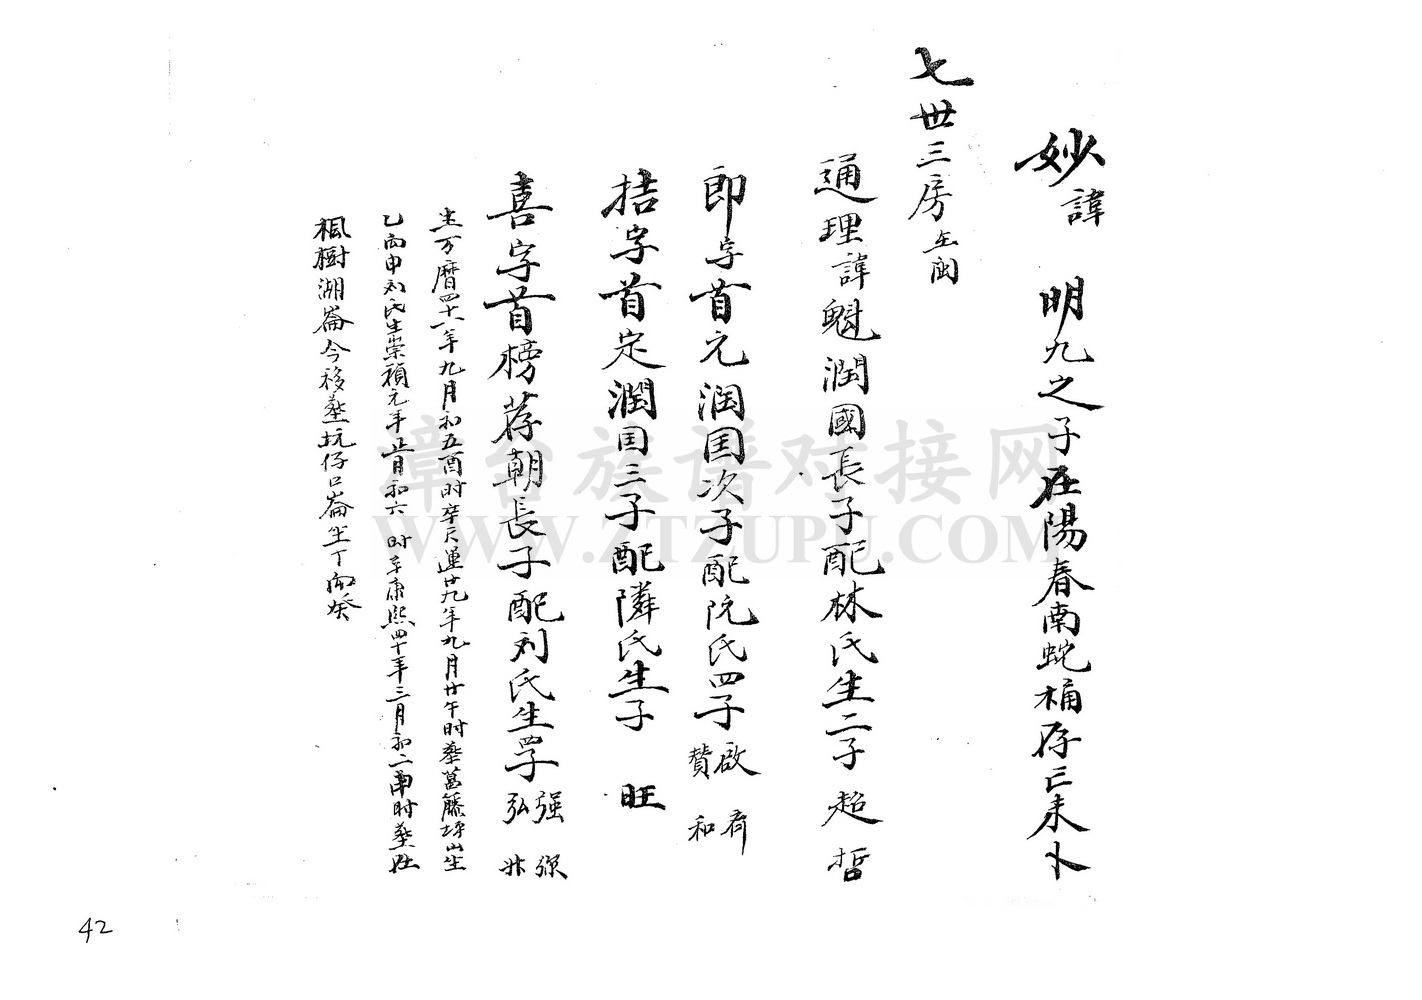 妙諱 明九之子在陽春南蛇桶存己未卜
七世三房在闽
通理諱魁潤國長子配林氏生二子 超 哲
即字首元润国次子配阮氏四子 啟 齊 贊 和
括字首定潤国三子配隣氏生子 旺
喜字首榜荐朝長子配刘氏生四子 强 弥 弘
生万曆四十六年九月初五酉时卒天運廿九年九月廿午时葬葛藤坪山生
乙丙申刘氏生崇禎元年正月初六 时卒康熙四十年三月初二 时葬
楓樹湖崙今移葬坑仔口崙坐丁向癸
漳台族谱对接网
WWW.ZTZUPU.COM
42